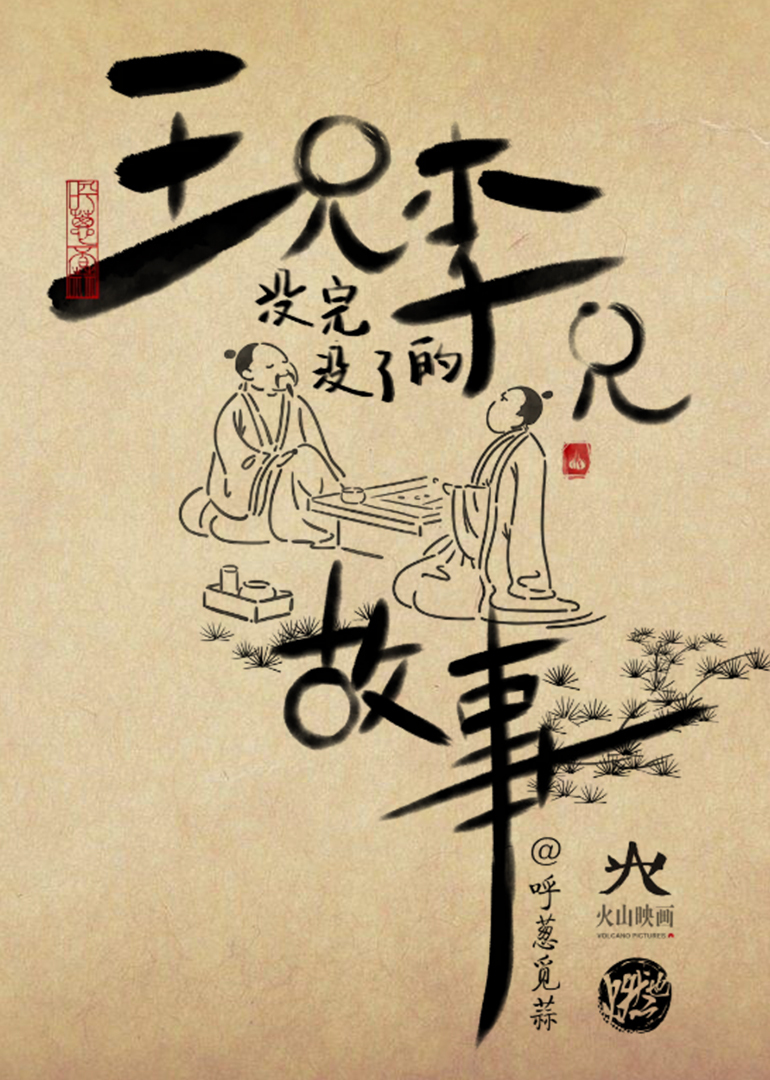 王兄李兄
没完
没了的
故事
@呼葱觅蒜
火山映画
VOLCANO PICTURES